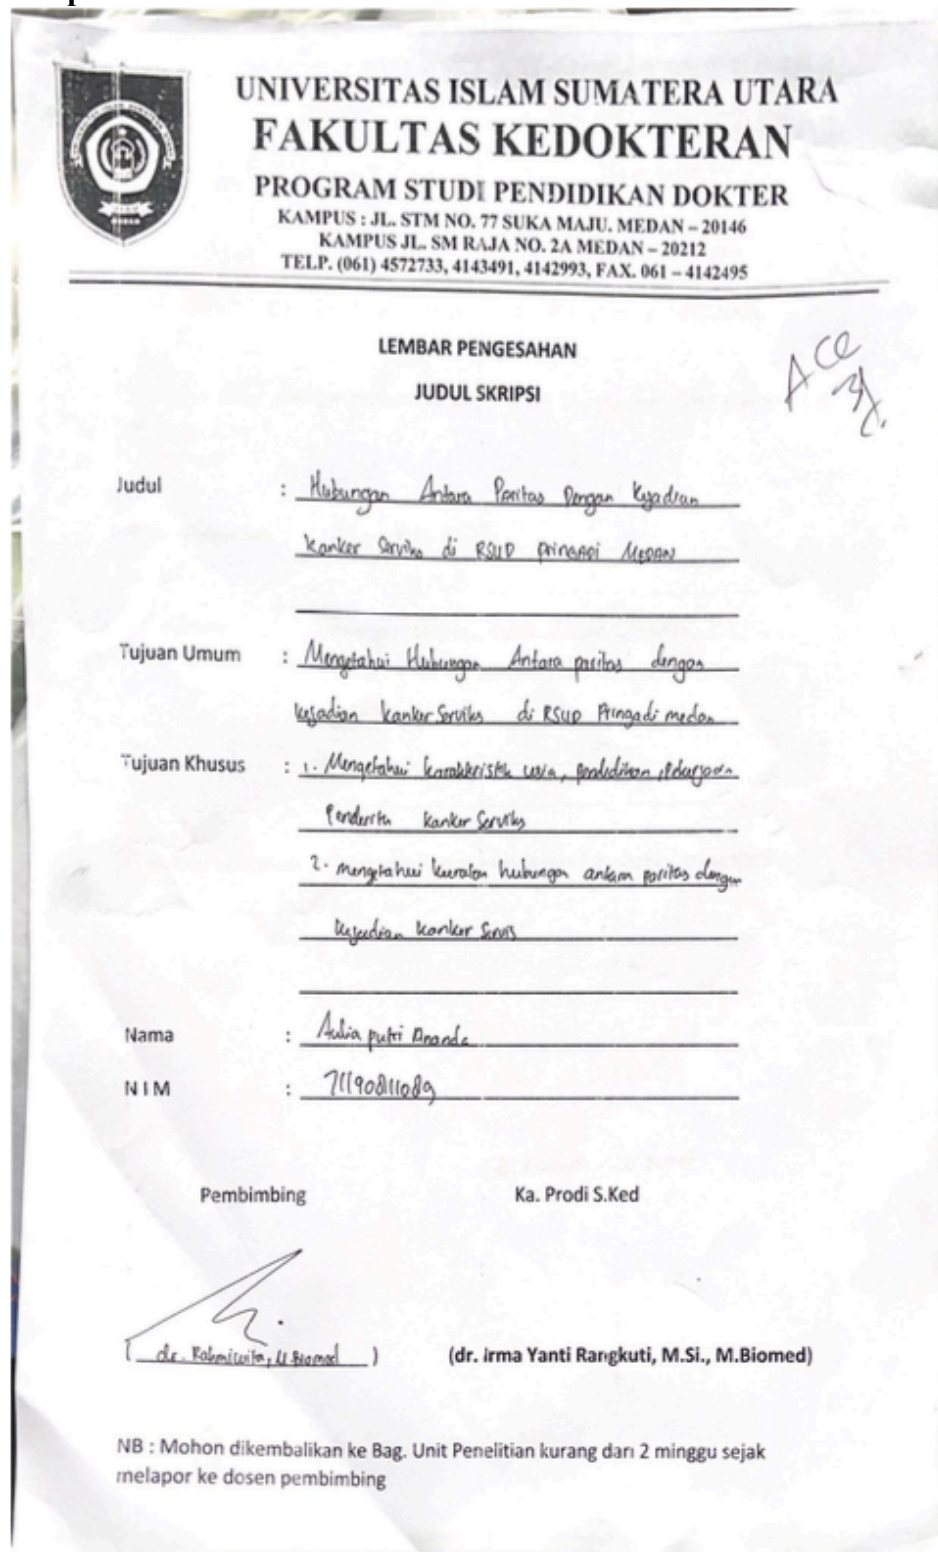 UNIVERSITAS ISLAM SUMATERA UTARA
FAKULTAS KEDOKTERAN
PROGRAM STUDI PENDIDIKAN DOKTER
KAMPUS : JL. STM NO. 77 SUKA MAJU. MEDAN – 20146
KAMPUS JL. SM RAJA NO. 2A MEDAN – 20212
TELP. (061) 4572733, 4143491, 4142993, FAX. 061 – 4142495
LEMBAR PENGESAHAN
JUDUL SKRIPSI
ACC
Judul : Hubungan Antara Paritas Dengan Kejadian
Kanker Serviks di RSUD Pringadi Medan
Tujuan Umum : Mengetahui Hubungan Antara paritas dengan
kejadian kanker Serviks di RSUD Pringadi medan
Tujuan Khusus : 1. Mengetahui karakteristik usia, pendidikan, Pekerjaan
Penderita kanker Serviks
2. mengetahui kuratan hubungan antara paritas dengan
kejadian kanker Servis
Nama : Aulia putri Ananda
NIM : 71190811089
Pembimbing Ka. Prodi S.Ked
( dr. Rahmiwita, M.Biomed ) (dr. Irma Yanti Rangkuti, M.Si., M.Biomed)
NB : Mohon dikembalikan ke Bag. Unit Penelitian kurang dari 2 minggu sejak
melapor ke dosen pembimbing